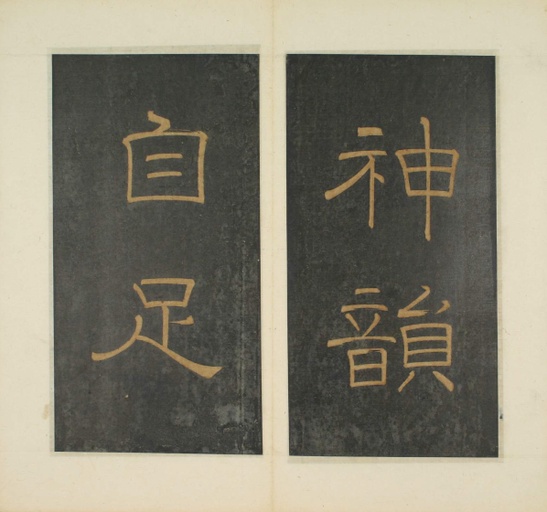 神韻
自足